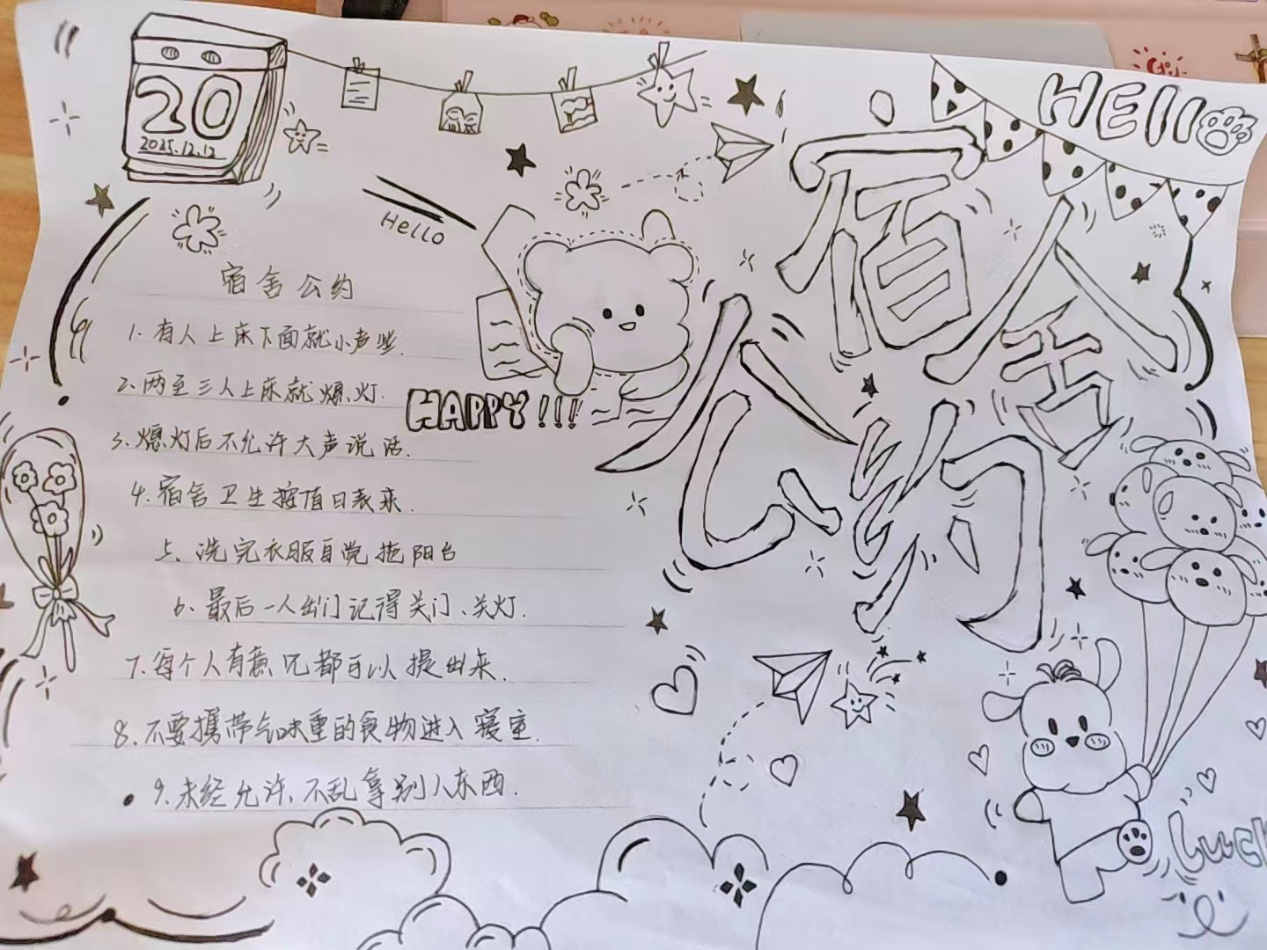 20
2025.12.12
Hello
HAPPY!!!
HEllo
宿舍
公约
宿舍公约
1. 有人上床下面就小声些.
2. 两至三人上床就熄灯.
3. 熄灯后不允许大声说话.
4. 宿舍卫生按值日表来.
5. 洗完衣服自觉拖阳台
6. 最后一人出门记得关门、关灯.
7. 每个人有意见都可以提出来.
8. 不要携带气味重的食物进入寝室.
9. 未经允许、不乱拿别人东西.
Luck